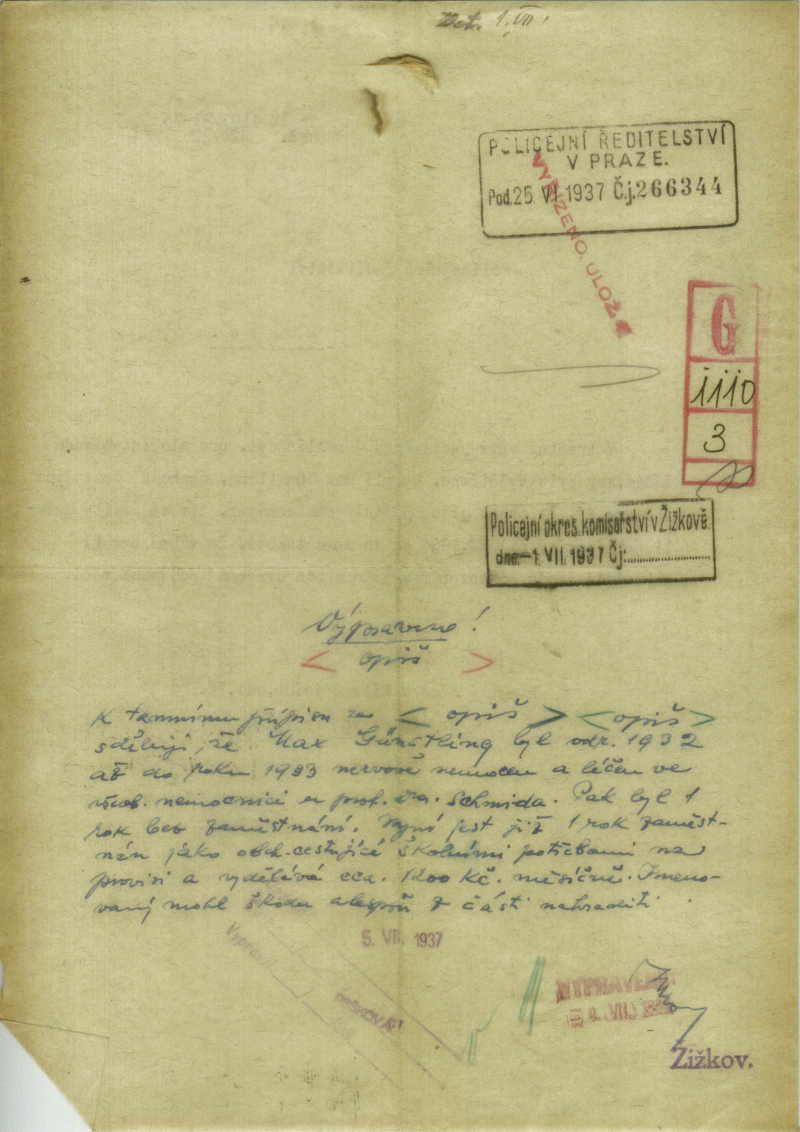 1. VII.
POLICEJNÍ ŘEDITELSTVÍ
V PRAZE.
Pod. 25. VI. 1937 Č.j. 266344
VYŘÍZENO, ULOŽ.
G
1110
3
Policejní okres. komisařství v Žižkově.
dne -1. VII. 1937 Čj:
opiš
K tamnímu přípisu ze < opiš > < opiš >
sděluji, že Max Günstling byl od r. 1932
až do roku 1933 nervově nemocen a léčen ve
všeob. nemocnici u prof. Dr. Schmida. Pak byl 1
rok bez zaměstnání. Nyní jest již 1 rok zaměst-
nán jako obch. cestující školními potřebami na
provisi a vydělává cca. 1200 Kč. měsíčně. Jmeno-
vaný mohl škodu alespoň z části nahraditi.
5. VII. 1937
VYPRAVENO
4. VII.
Žižkov.